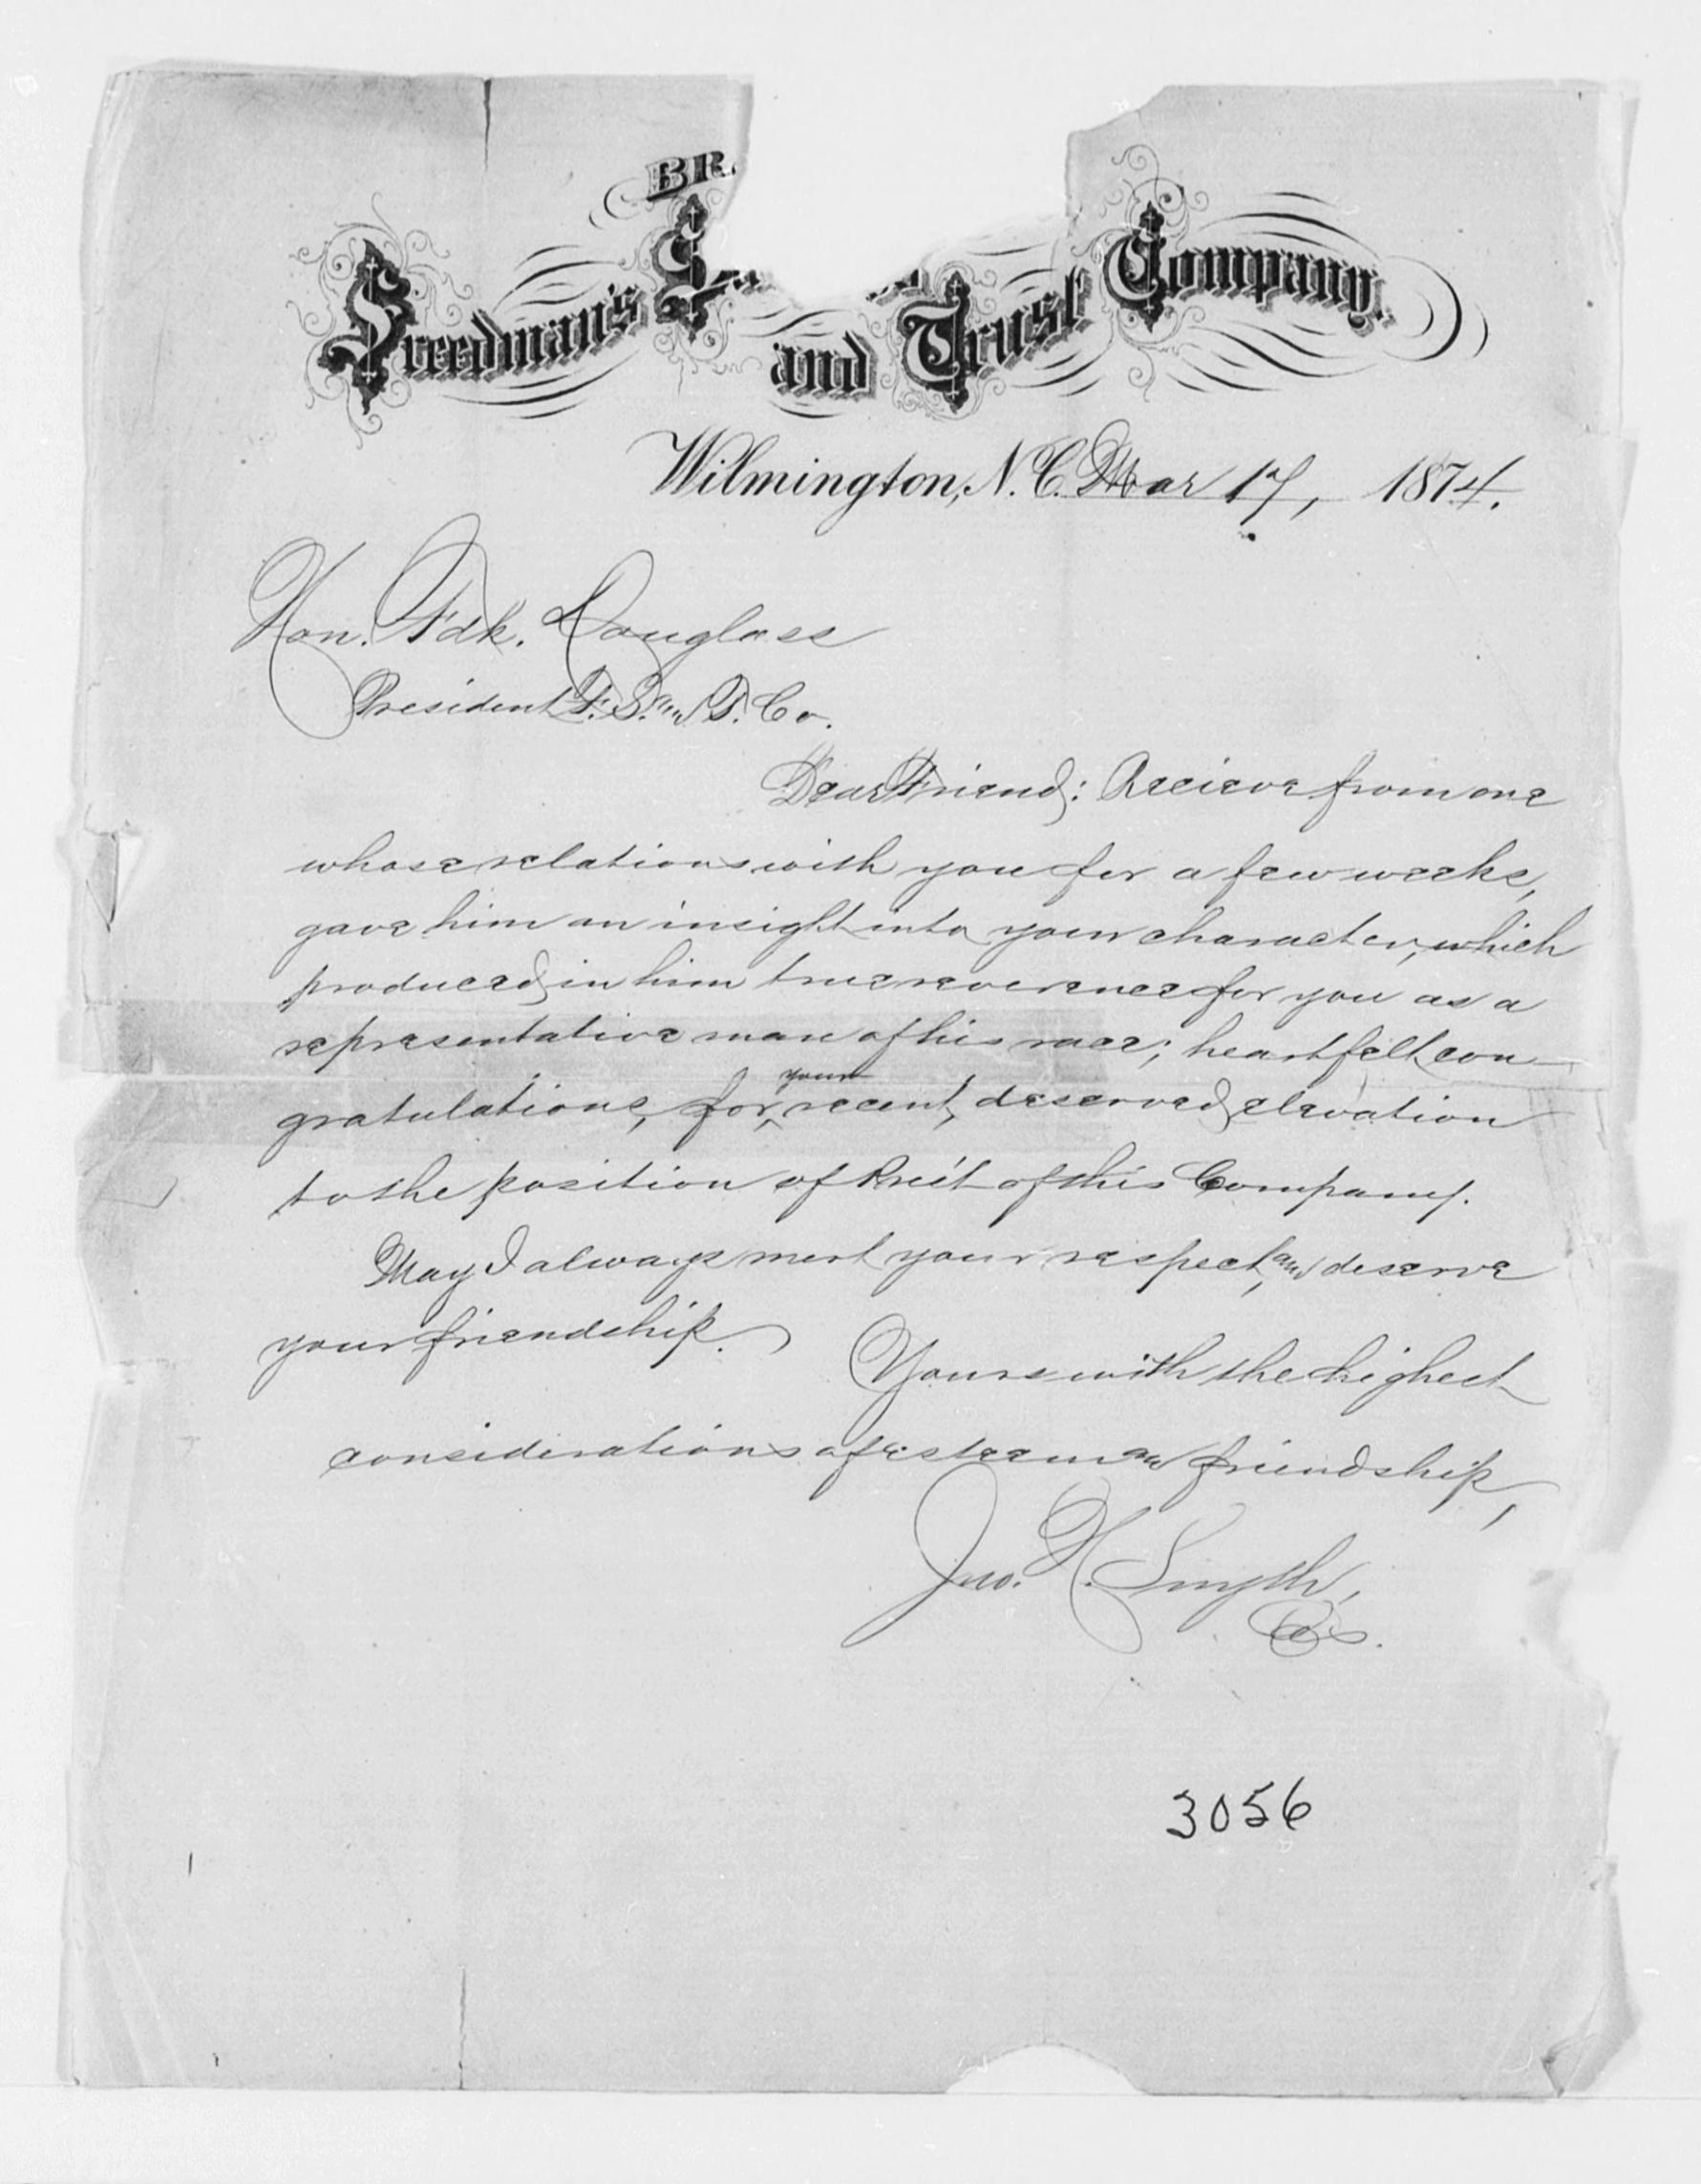 BR
Freedman's Sa
and Trust Company.
Wilmington, N.C. Mar 17, 1874.
Hon. Fdk. Douglass
President F. S. and T. Co.
Dear Friend: Recieve from one
whose relations with you for a few weeks,
gave him an insight into your character, which
produced in him true reverence for you as a
representative man of his race; heartfelt con-
gratulations, for your recent, deserved elevation
to the position of Pres't of this Company.
May I always merit your respect, and deserve
your friendship.
Yours with the highest
considerations of esteem and friendship,
Jno. H. Smyth,
3056